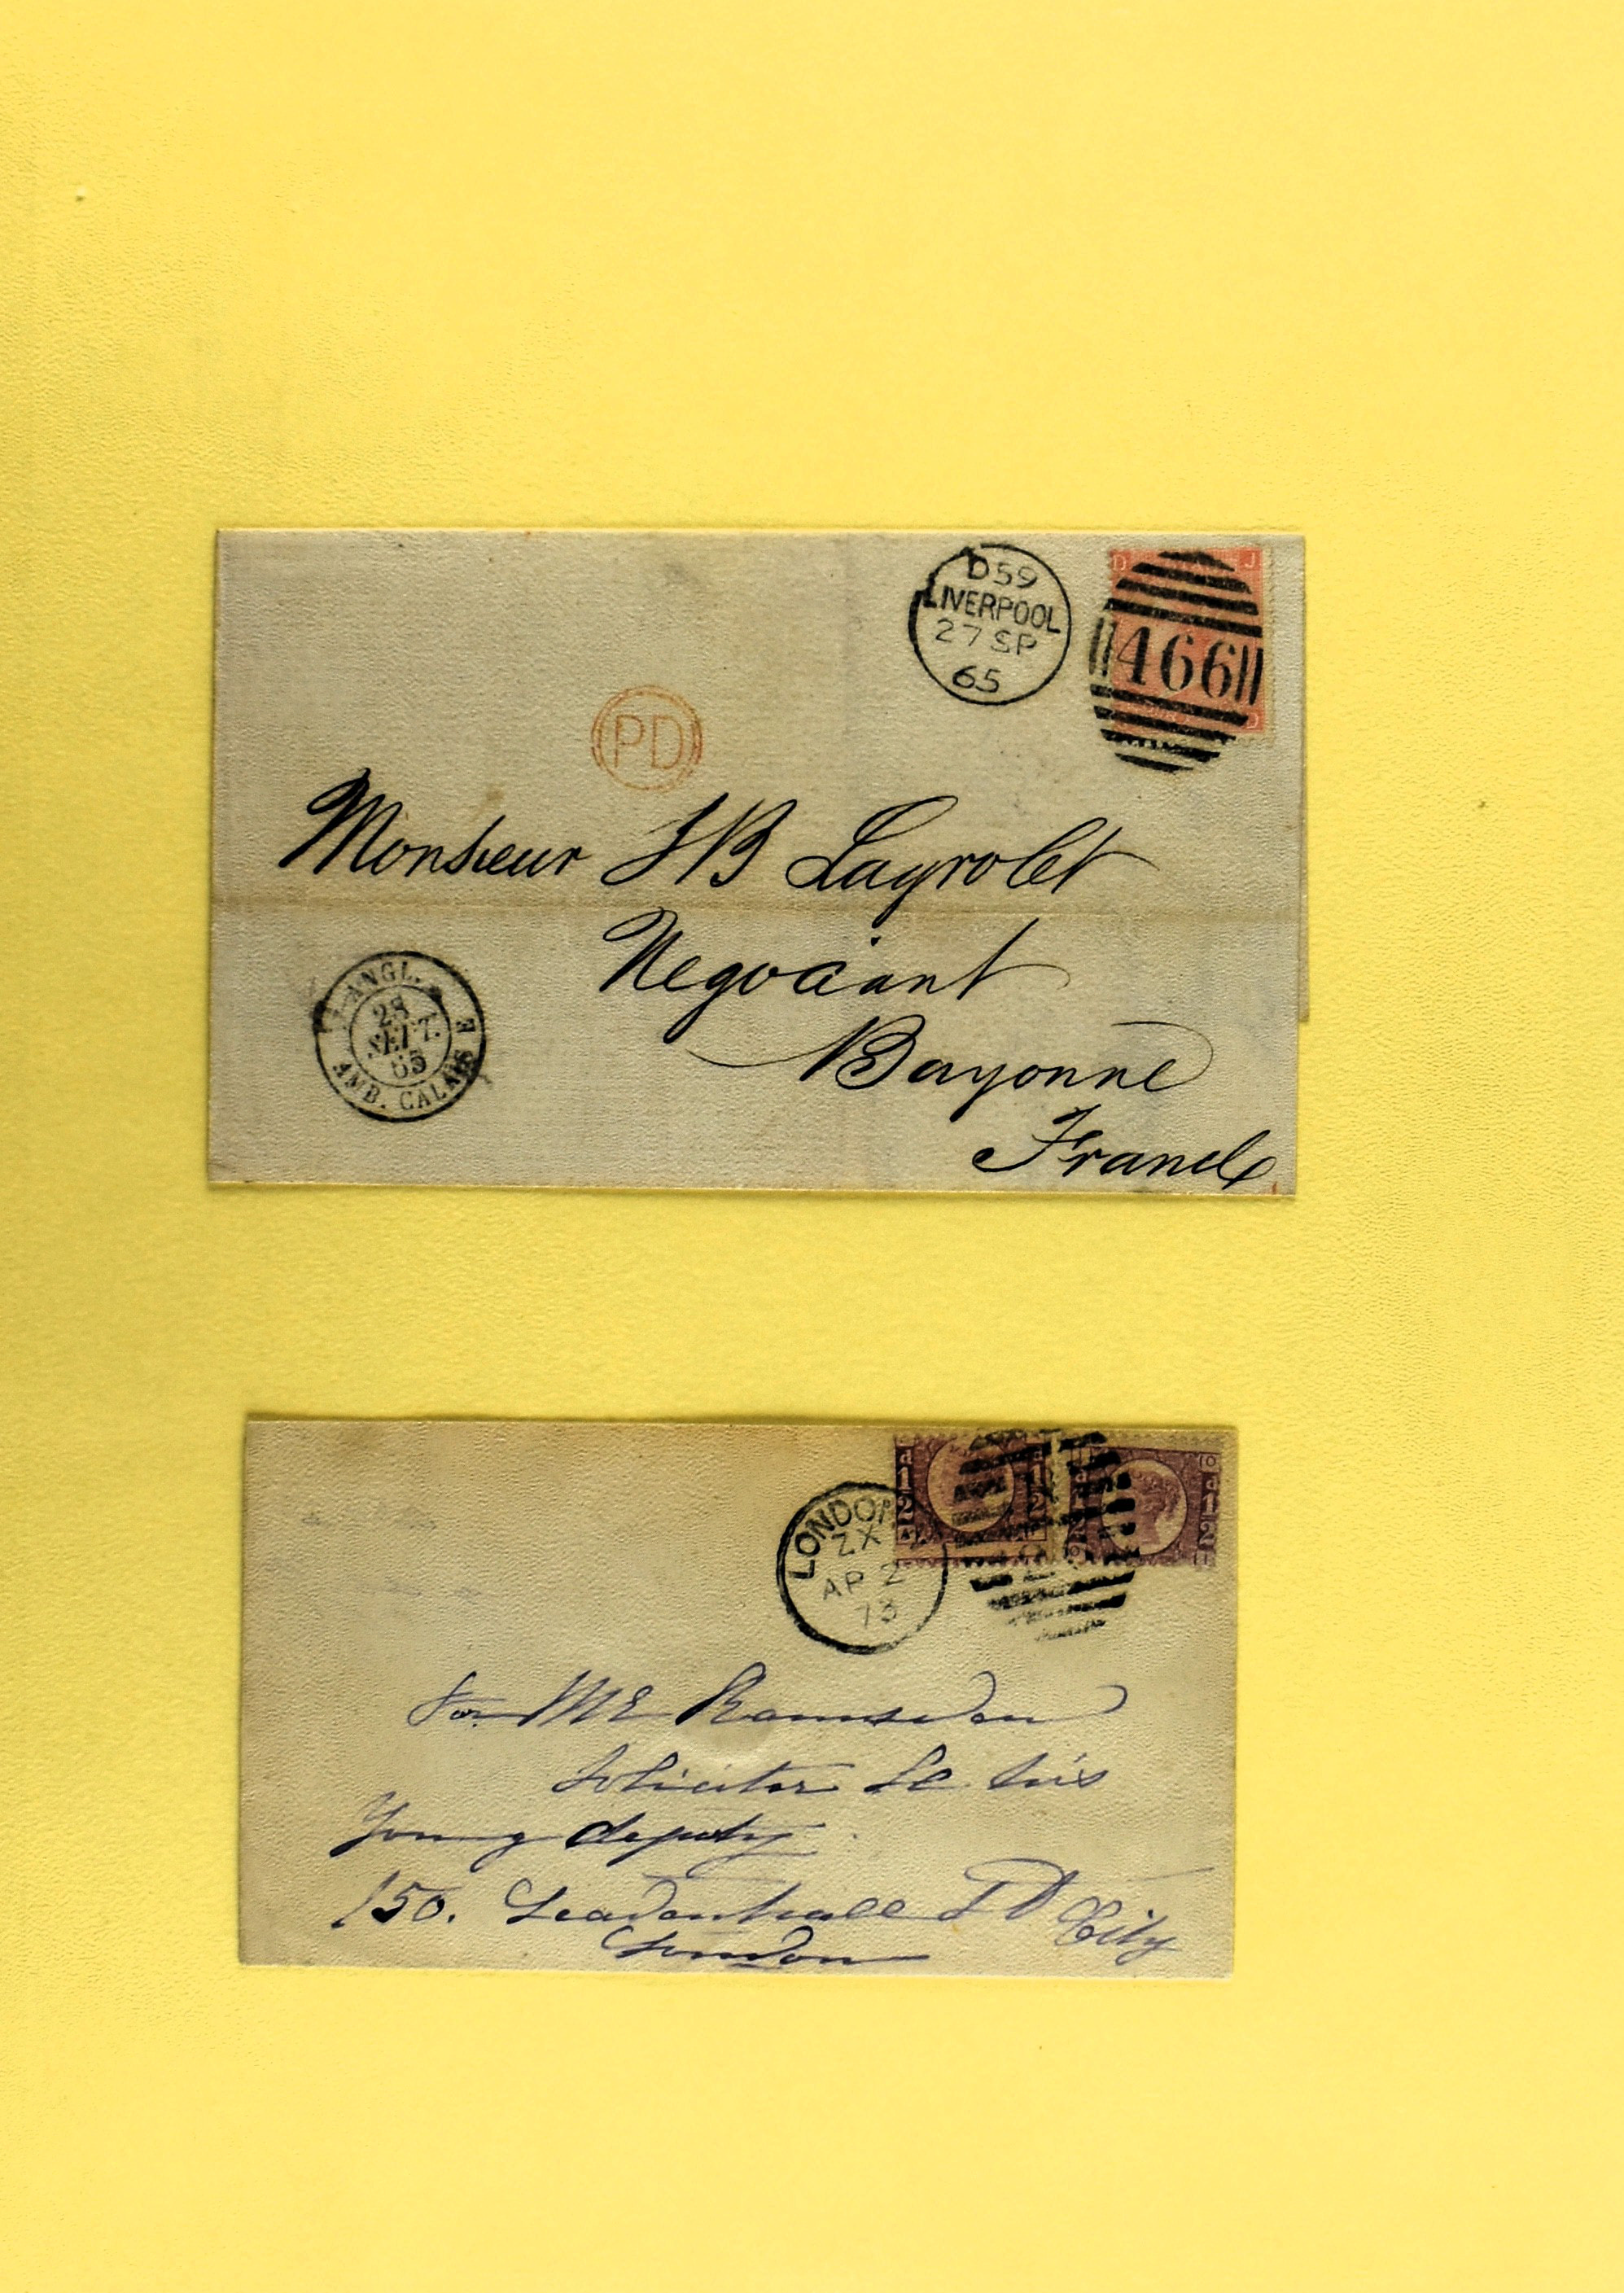 D59
LIVERPOOL
27 SP
65
D J
466
D
PD
Monsieur JB Layrolet
Negociant
Bayonne
France
ANGL.
28
SEPT.
65
AMB. CALAIS E
LONDON
ZX
AP 2
73
For Mr Ramsden
Solicitor
Young deputy
150. Leadenhall St City
London